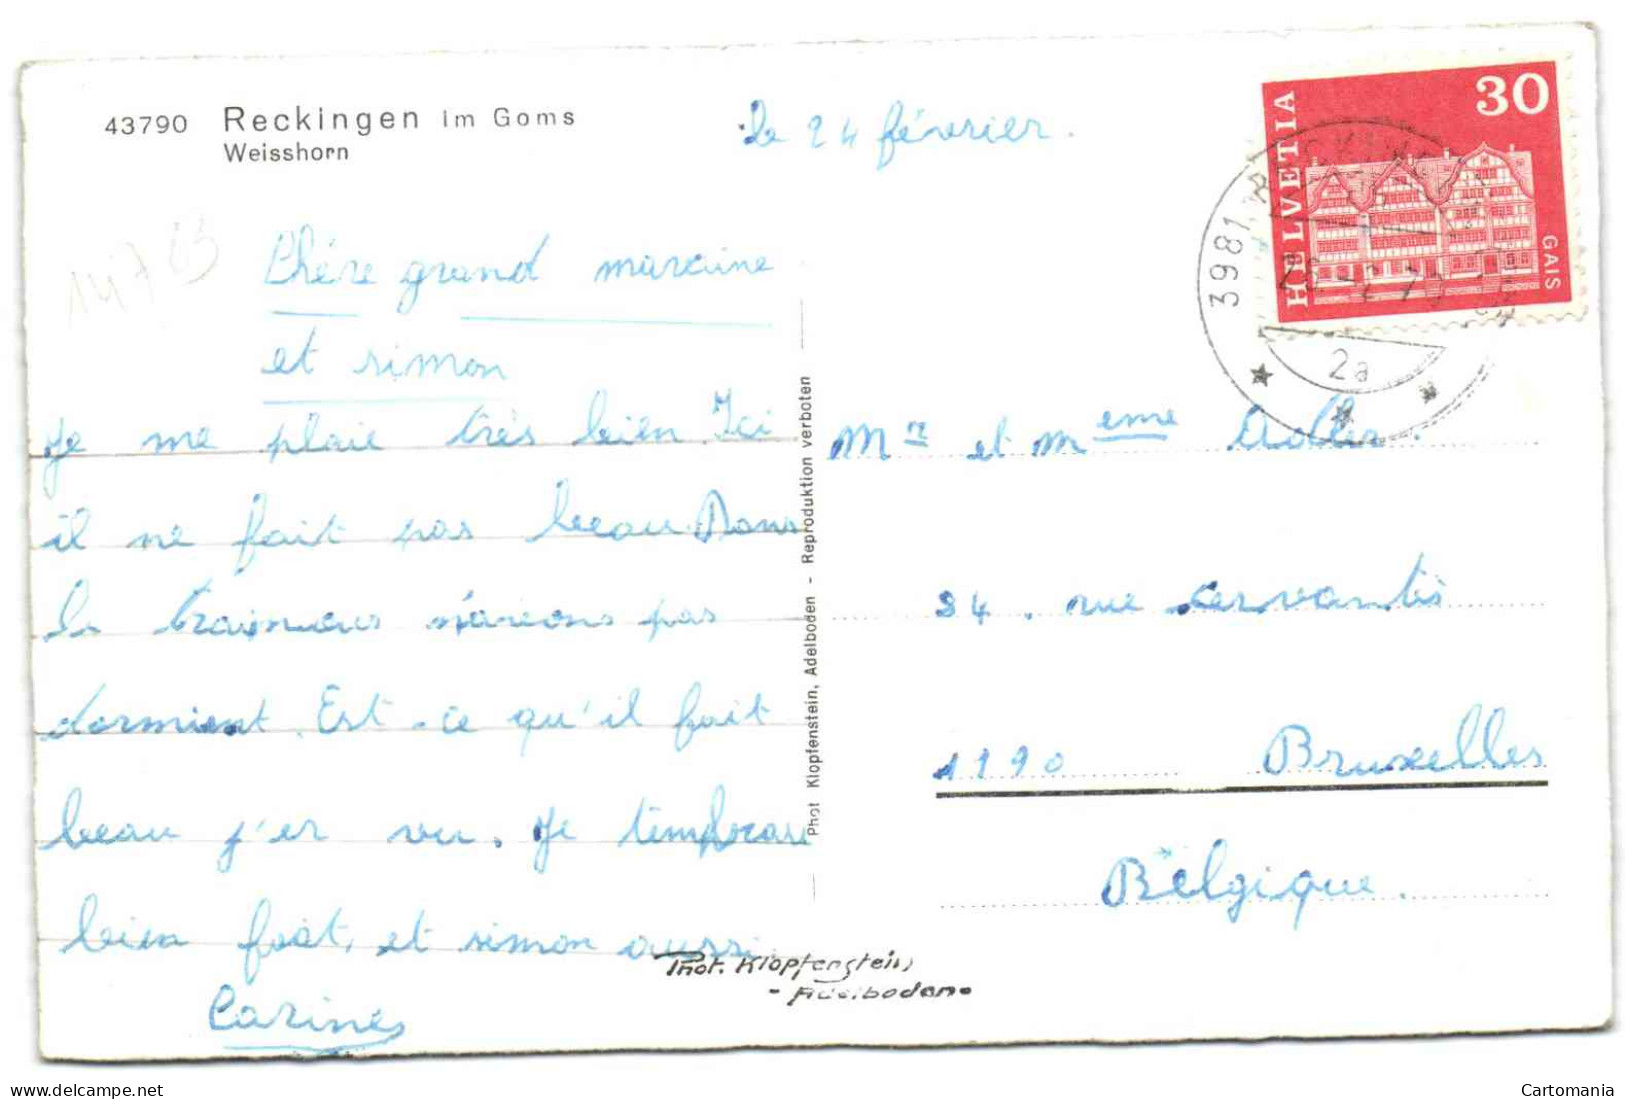 43790 Reckingen im Goms
Weisshorn
le 24 février.
14763
Chère grand maraine
et simon
Je me plaie très bien Ici
il ne fait pas beau Dans
le
pas
dormient. Est-ce qu'il fait
beau j'er vu. Je
bien foat, et simon aussi
Carines
Phot. Klopfenstein, Adelboden - Reproduktion verboten
Phot. Klopfenstein,
- Adelboden -
HELVETIA
30
GAIS
3981 RECKINGEN
2a
Mr et Meme Adler.
24. rue cervantès
1190 Bruxelles
Bèlgique.
Cartomania